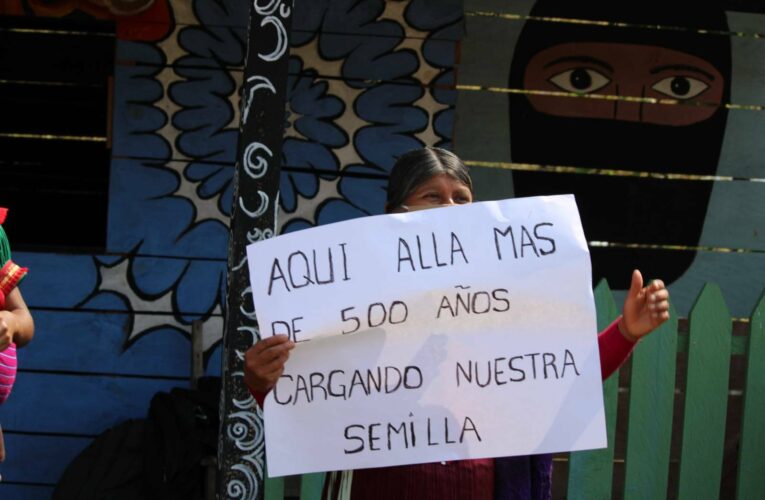 AQUI ALLA MAS
DE 500 AÑOS
CARGANDO NUESTRA
SEMILLA